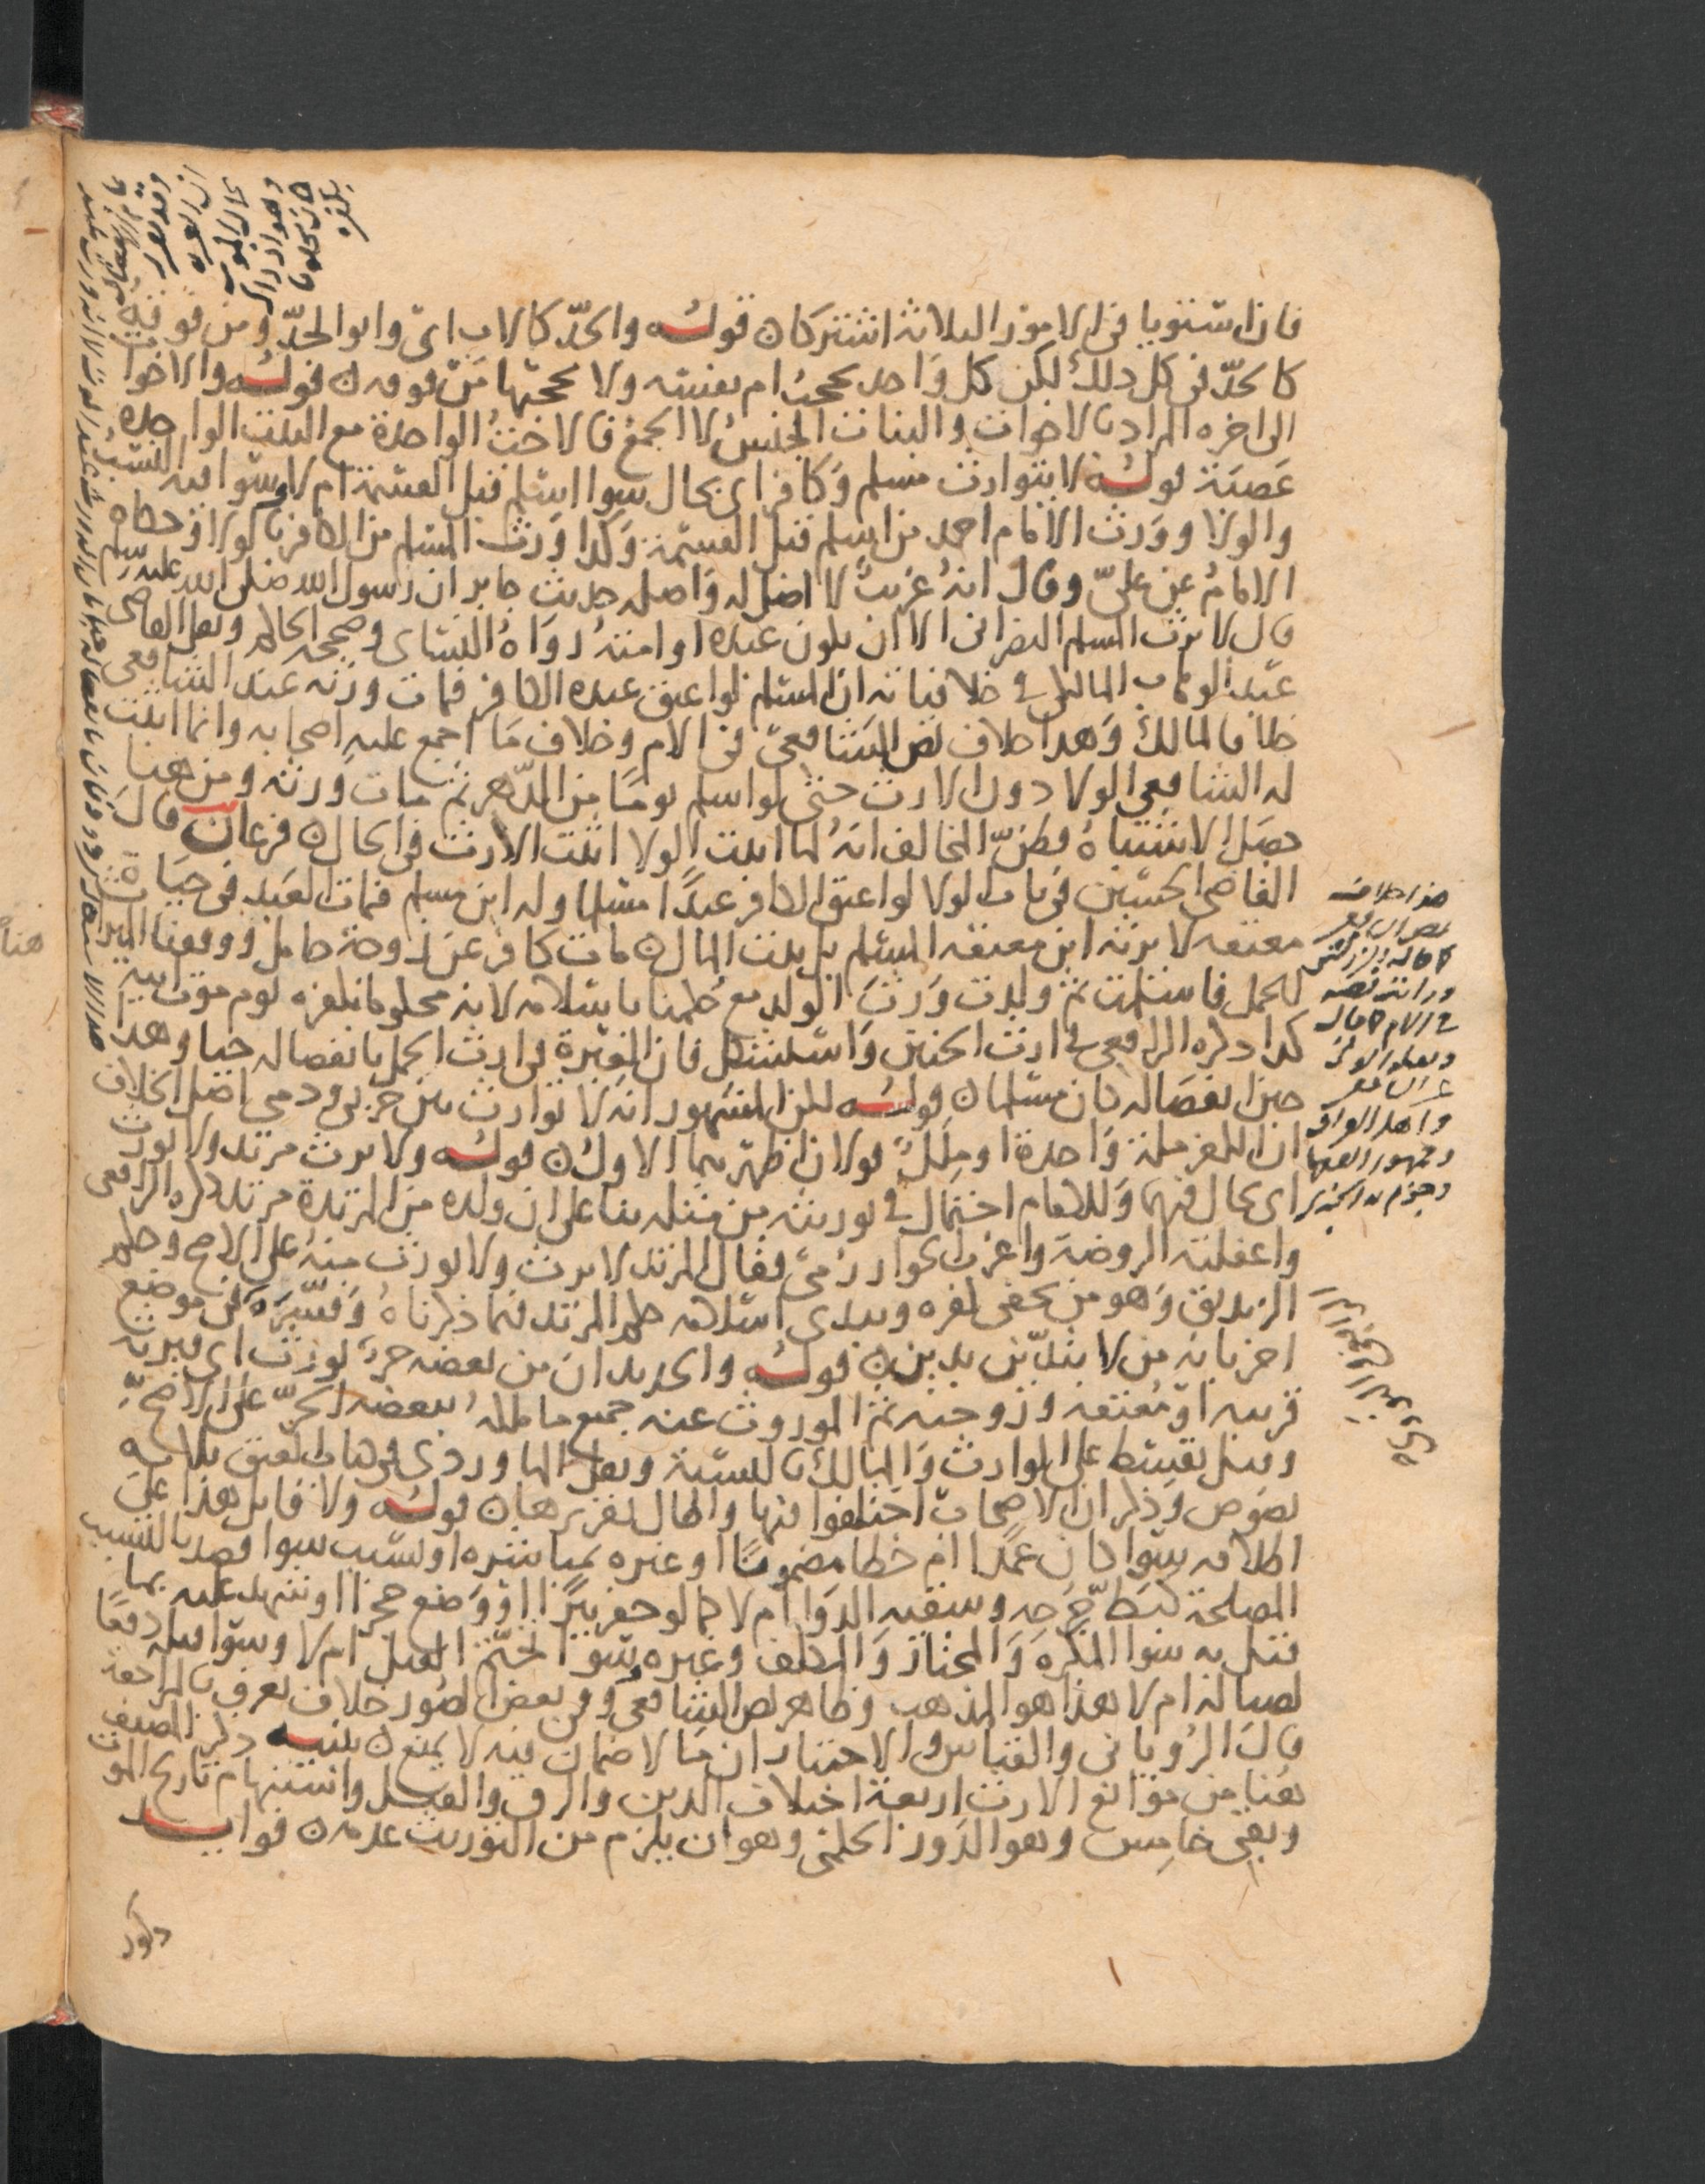 فان استويا في الامور الثلاثة اشتركا ن قوله والجدّ كالاب اي وابو الجدّ ومن فوقه
كالجدّ في كل ذلك لكن كل واحد يحجب ام نفسه ولا يحجبها من فوقه ن قوله والاخوات
الى اخره المراد بالاخوات والبنات الجنس لا الجمع فالاخت الواحدة مع البنت الواحدة
عصبة قوله لا يتوارث مسلم وكافر اي بحال سوا اسلم قبل القسمة ام لا وسوا فيه النسب
والولا وورث الامام احمد من اسلم قبل القسمة وكذا ورث المسلم من الكافر بالولا وحكاه
الامام عن علي وقال انه غريب لا اصل له واصله حديث جابر ان رسول الله صلى الله عليه وسلم
قال لا يرث المسلم النصراني الا ان يكون عبده او امته رواه النساي وصححه الحاكم ونقل القاضي
عبد الوهاب المالكي في خلافياته ان المسلم لو اعتق عبده الكافر فمات ورثه عند الشافعي
خلافا لمالك وهذا خلاف نص الشافعي في الام وخلاف ما اجمع عليه اصحابه وانما اثبت
له الشافعي الولا دون الارث حتى لو اسلم يوما من الدهر ثم مات ورثه ومن هنا
حصل الاشتباه فظن المخالف انه لما اثبت الولا اثبت الارث في الحال ن فرعان قال
القاضي الحسين في باب الولا لو اعتق الكافر عبدا مسلما وله ابن مسلم فمات العبد في حياة
معتقه لا يرثه ابن معتقه المسلم بل بيت المال ن مات كافر عن زوجة حامل ووقفنا الميراث
للحمل فاسلمت ثم ولدت ورث الولد مع حكمنا باسلامه لانه محكوم بكفره يوم موت ابيه
كذا ذكره الرافعي في ارث الجنين واستشكل فان العبرة في ارث الحمل بانفصاله حيا وهذا
حين انفصاله كان مسلما ن قوله لكن المشهور انه لا توارث بين حربي وذمي اصل الخلاف
ان الكفر ملة واحدة او ملل قولان اظهرهما الاول ن قوله ولا يرث مرتد ولا يورث
اي بحال فيهما وللامام احتمال في توريثه من مثله بنا على ان ولده من المرتدة مرتد ذكره الرافعي
واغفلته الروضة واغرب الخوارزمي فقال المرتد لا يرث ولا يورث منه على الاصح وحكم
الزنديق وهو من يخفي كفره ويبدي اسلامه حكم المرتد فيما ذكرناه وفسره في موضع
اخر بانه من لا يتديّن بدين ن قوله والجديد ان من بعضه حر يورث اي فيرثه
قريبه او معتقه وزوجته ثم الموروث عنه جميع ما ملكه ببعضه الحر على الاصح
وقيل يقسط على الوارث والمالك بالنسبة ونقل الماوردي في باب العتق ثلاثة
نصوص وذكر ان الاصحاب اختلفوا فيها واطال تقريرها ن قوله ولا قاتل هذا على
اطلاقه سوا كان عمدا ام خطا مضمونا او غيره بمباشره او تسبب سوا قصد بالتسبب
المصلحة كبط جرحه وسقيه الدوا ام لا كما لو حفر بيرا او وضع حجرا او شهد عليه بما
قتل به سوا المكره والمختار والمكلف وغيره سوا تحتّم القتل ام لا وسوا قتله دفعا
لصياله ام لا هذا هو المذهب وظاهر نص الشافعي وفي بعض الصور خلاف يعرف بالمراجعة
قال الروياني والقياس والاختيار ان ما لا ضمان فيه لا يمنع ن تنبيه ذكر المصنف
هنا من موانع الارث اربعة اختلاف الدين والرق والقتل واستبهام تاريخ الموت
وبقي خامس وهو الدور الحكمي وهو ان يلزم من التوريث عدمه ن فوايد
هذا خلاف
نص الشافعي
كما قاله الزركشي
ورايت نصه
في الام كما قاله
واهل العراق
وجمهور الفقها